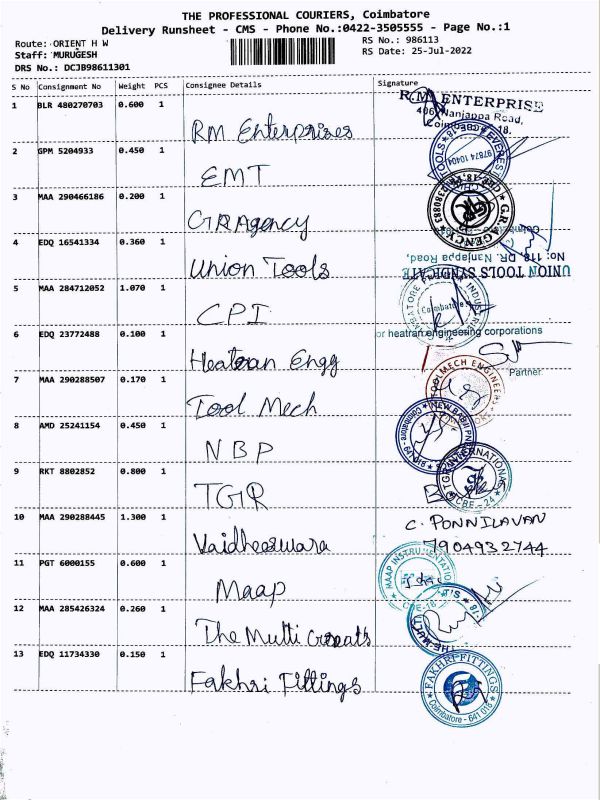 THE PROFESSIONAL COURIERS, Coimbatore
Delivery Runsheet - CMS - Phone No.:0422-3505555 - Page No.:1
Route: ORIENT H W
RS No.: 986113
Staff: MURUGESH
RS Date: 25-Jul-2022
DRS No.: DCJB98611301
S No Consignment No Weight PCS Consignee Details Signature
1 BLR 480270703 0.600 1 RM Enterprises
R.M. ENTERPRISE
406, Nanjappa Road,
Coimbatore-18.
2 GPM 5204933 0.450 1 EMT
EVEREST TOOLS
97874 10404
3 MAA 290466186 0.200 1 GR Agency
G.R. AGENCY
4 EDQ 16541334 0.360 1 Union Tools
UNION TOOLS SYNDICATE
No: 118, DR. Nanjappa Road,
5 MAA 284712052 1.070 1 CPI
Coimbatore
6 EDQ 23772488 0.100 1 Heatran Engg
or heatran engineering corporations
Partner
7 MAA 290288507 0.170 1 Tool Mech
TOOLMECH ENGINEERS
8 AMD 25241154 0.450 1 NBP
9 RKT 8802852 0.800 1 TGR
TGR INTERNATIONAL
CBE - 24
10 MAA 290288445 1.300 1 Vaidheeswara
C. PONNILAVAN
7904932744
11 PGT 6000155 0.600 1 Maap
MAAP INSTRUMENTATION
CBE-18
12 MAA 285426324 0.260 1 The Multi Crreats
THE MULTI
13 EDQ 11734330 0.150 1 Fakhri Fittings
FAKHRI FITTINGS
Coimbatore - 641 018